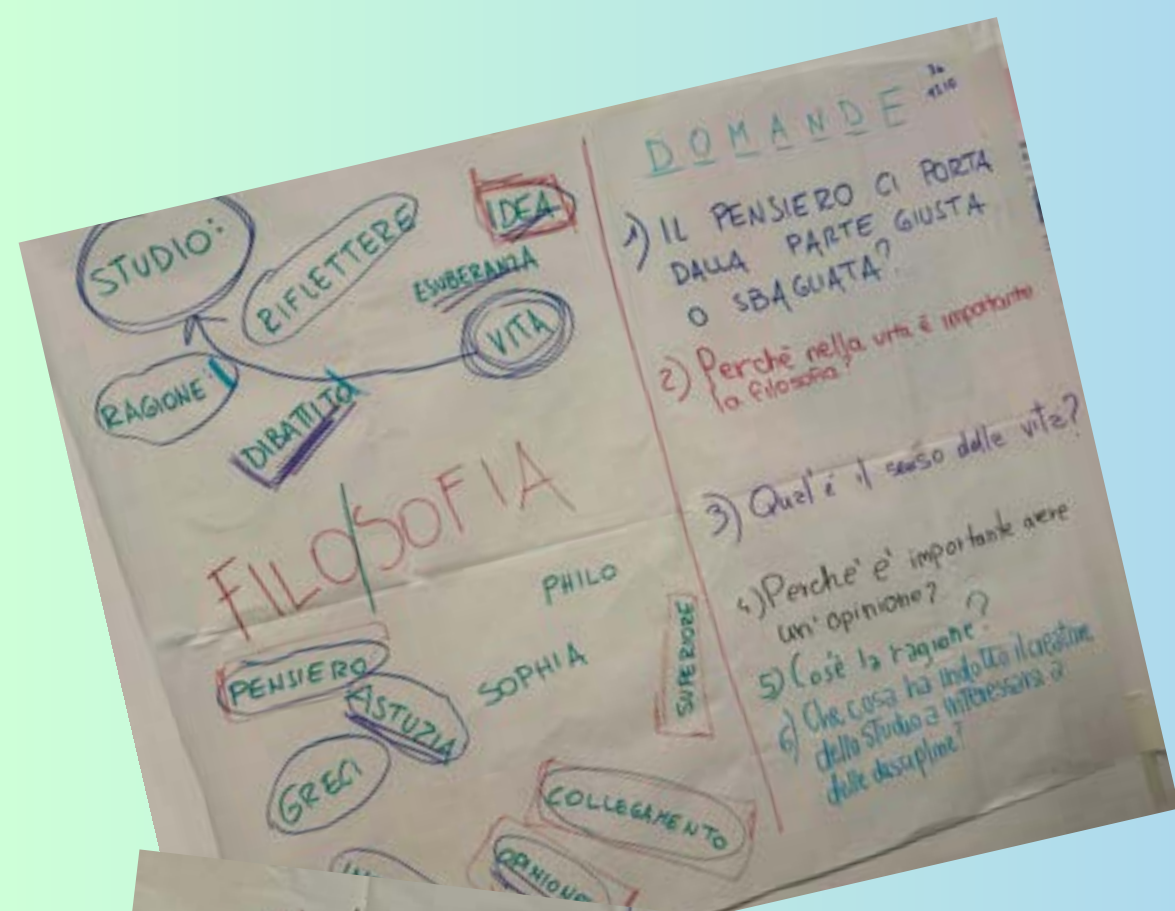 STUDIO:
RIFLETTERE
IDEA
ESUBERANZA
VITA
RAGIONE
DIBATTITO
FILO/SOFIA
PHILO
SOPHIA
PENSIERO
ASTUZIA
SUPERIORE
GRECI
COLLEGAMENTO
OPINIONE
DOMANDE
1) IL PENSIERO CI PORTA
DALLA PARTE GIUSTA
O SBAGLIATA?
2) Perchè nella vita è importante
la filosofia?
3) Qual'è il senso della vita?
4) Perche' e' importante avere
un'opinione?
5) Cos'è la ragione?
6) Che cosa ha indotto il creatore
dello studio a interessarsi a
delle discipline?